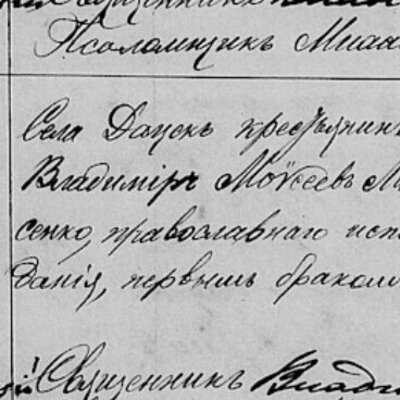 Священникъ
Псаломщикъ Миха
Села Дацекъ крестьянин
Владимiръ Моѵсеевъ М
сенко, православнаго исп
данiя, первымъ бракомъ
Священникъ Влад